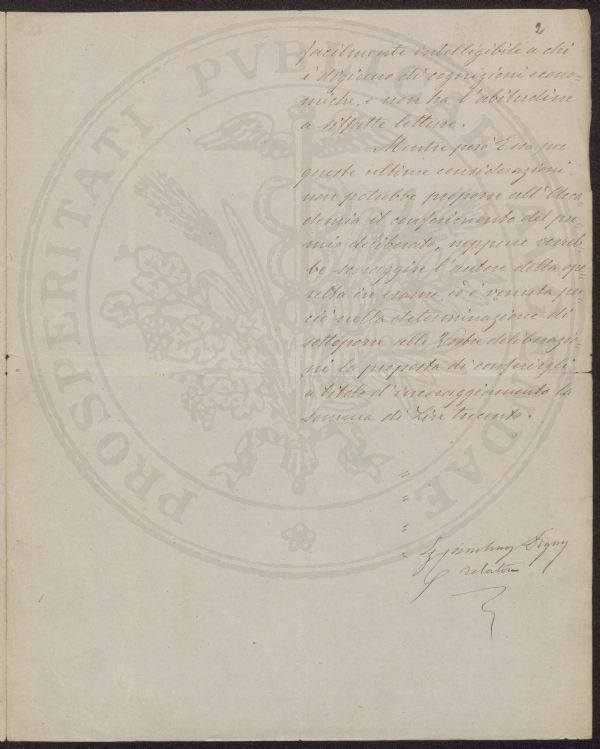 2
facilmente intelligibile a chi
è digiuno di cognizioni econo-
miche, e non ha l'abitudine
a siffatte letture.
Mentre però Essa per
queste ultime considerazioni
non potrebbe proporre all'Acca-
demia il conferimento del pre-
mio deliberato, neppure vorreb-
be scoraggire l'autore della ope-
retta in esame ed è venuta per-
ciò nella determinazione di
sottoporre alle Vostre deliberazio-
ni la proposta di conferirgli
a titolo d'incoraggiamento la
somma di Lire trecento.
Digny
relatore
PROSPERITATI PUBLICAE AUGENDAE